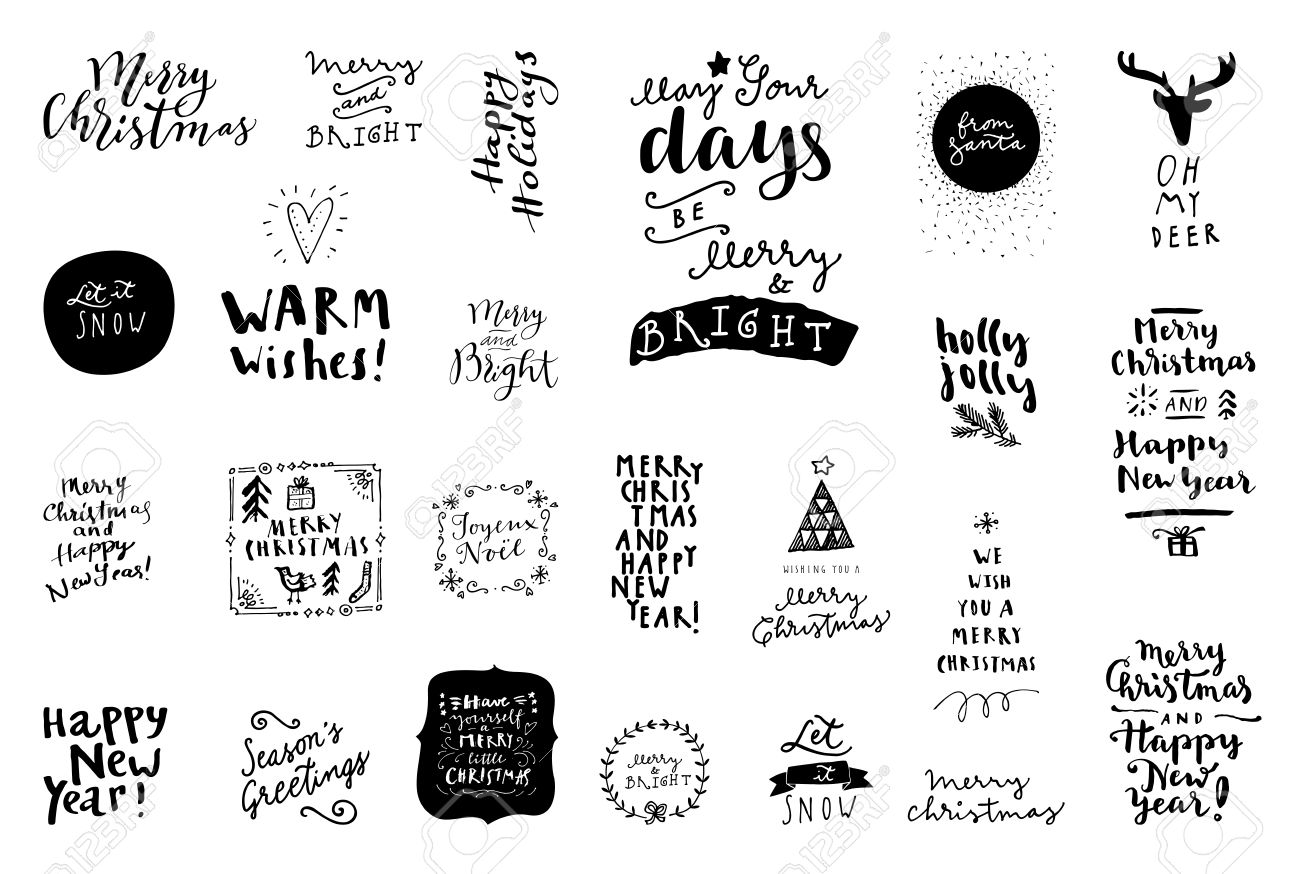 Merry
Christmas
Merry
and
BRIGHT
Happy
Holidays
May Your
days
BE
Merry
&
BRIGHT
from
santa
OH
MY
DEER
Let it
SNOW
WARM
wishes!
Merry
and
Bright
holly
jolly
Merry
Christmas
AND
Happy
New Year
Merry
Christmas
and
Happy
New Year!
MERRY
CHRISTMAS
Joyeux
Noël
MERRY
CHRIS
TMAS
AND
HAPPY
NEW
YEAR!
WISHING YOU A
Merry
Christmas
WE
WISH
YOU A
MERRY
CHRISTMAS
Happy
New
Year!
Season's
Greetings
Have
yourself
a
MERRY
little
CHRISTMAS
Merry
&
BRIGHT
Let
it
SNOW
Merry
christmas
Merry
Christmas
AND
Happy
New
Year!
123RF